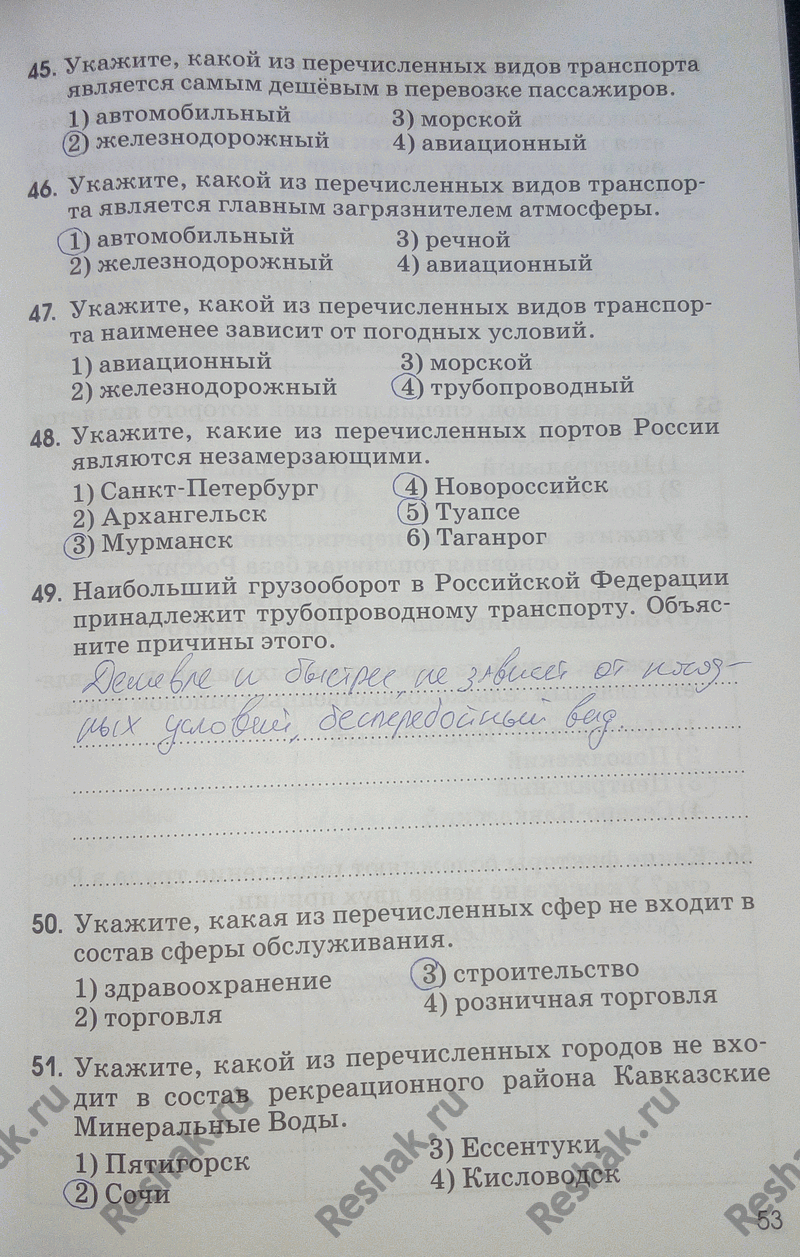 45. Укажите, какой из перечисленных видов транспорта
является самым дешёвым в перевозке пассажиров.
1) автомобильный 3) морской
2) железнодорожный 4) авиационный
46. Укажите, какой из перечисленных видов транспор-
та является главным загрязнителем атмосферы.
1) автомобильный 3) речной
2) железнодорожный 4) авиационный
47. Укажите, какой из перечисленных видов транспор-
та наименее зависит от погодных условий.
1) авиационный 3) морской
2) железнодорожный 4) трубопроводный
48. Укажите, какие из перечисленных портов России
являются незамерзающими.
1) Санкт-Петербург 4) Новороссийск
2) Архангельск 5) Туапсе
3) Мурманск 6) Таганрог
49. Наибольший грузооборот в Российской Федерации
принадлежит трубопроводному транспорту. Объяс-
ните причины этого.
Дешевле и быстрее, не зависит от погод-
ных условий, бесперебойный вид.
50. Укажите, какая из перечисленных сфер не входит в
состав сферы обслуживания.
1) здравоохранение 3) строительство
2) торговля 4) розничная торговля
51. Укажите, какой из перечисленных городов не вхо-
дит в состав рекреационного района Кавказские
Минеральные Воды.
1) Пятигорск 3) Ессентуки
2) Сочи 4) Кисловодск
Reshak.ru Reshak.ru Reshak.ru
53